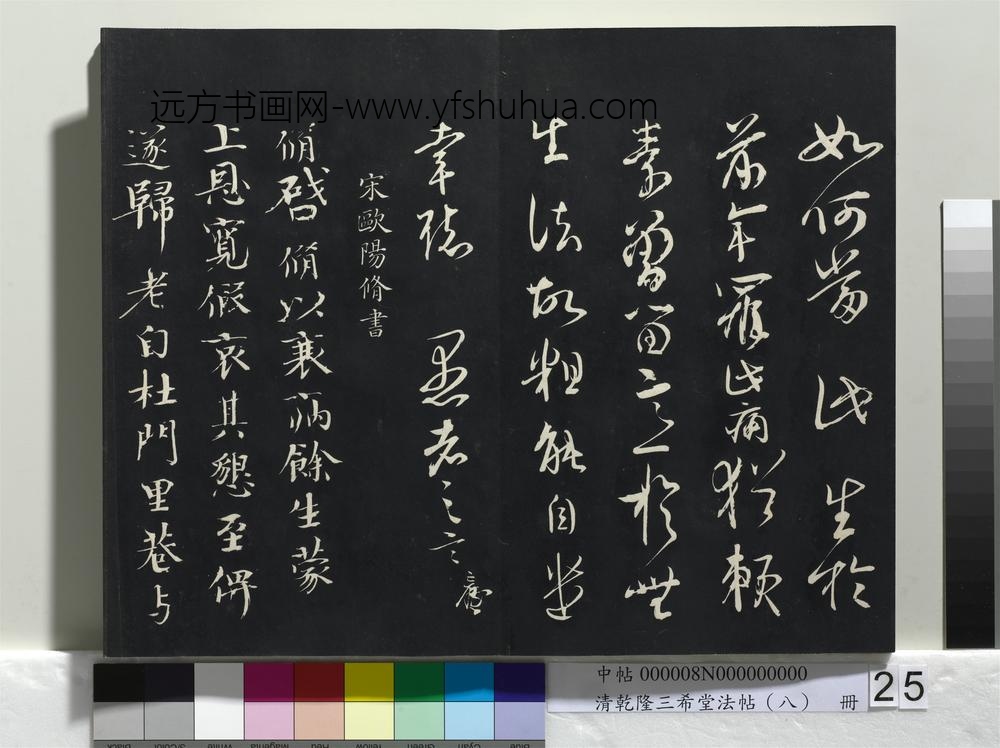 远方书画网-www.yfshuhua.com
如何蒙此生於
前年罹此痛猶賴
素曾留意於無
生法故粗能自遣
幸聽愚者之言
宋歐陽脩書
脩啓脩以衰病餘生蒙
上恩寬假哀其懇至俾
遂歸老自杜門里巷与
中帖 000008N000000000
清乾隆三希堂法帖(八) 冊
25
Black
3/Color
White
Magenta
Red
Yellow
Green
Cyan
Blue